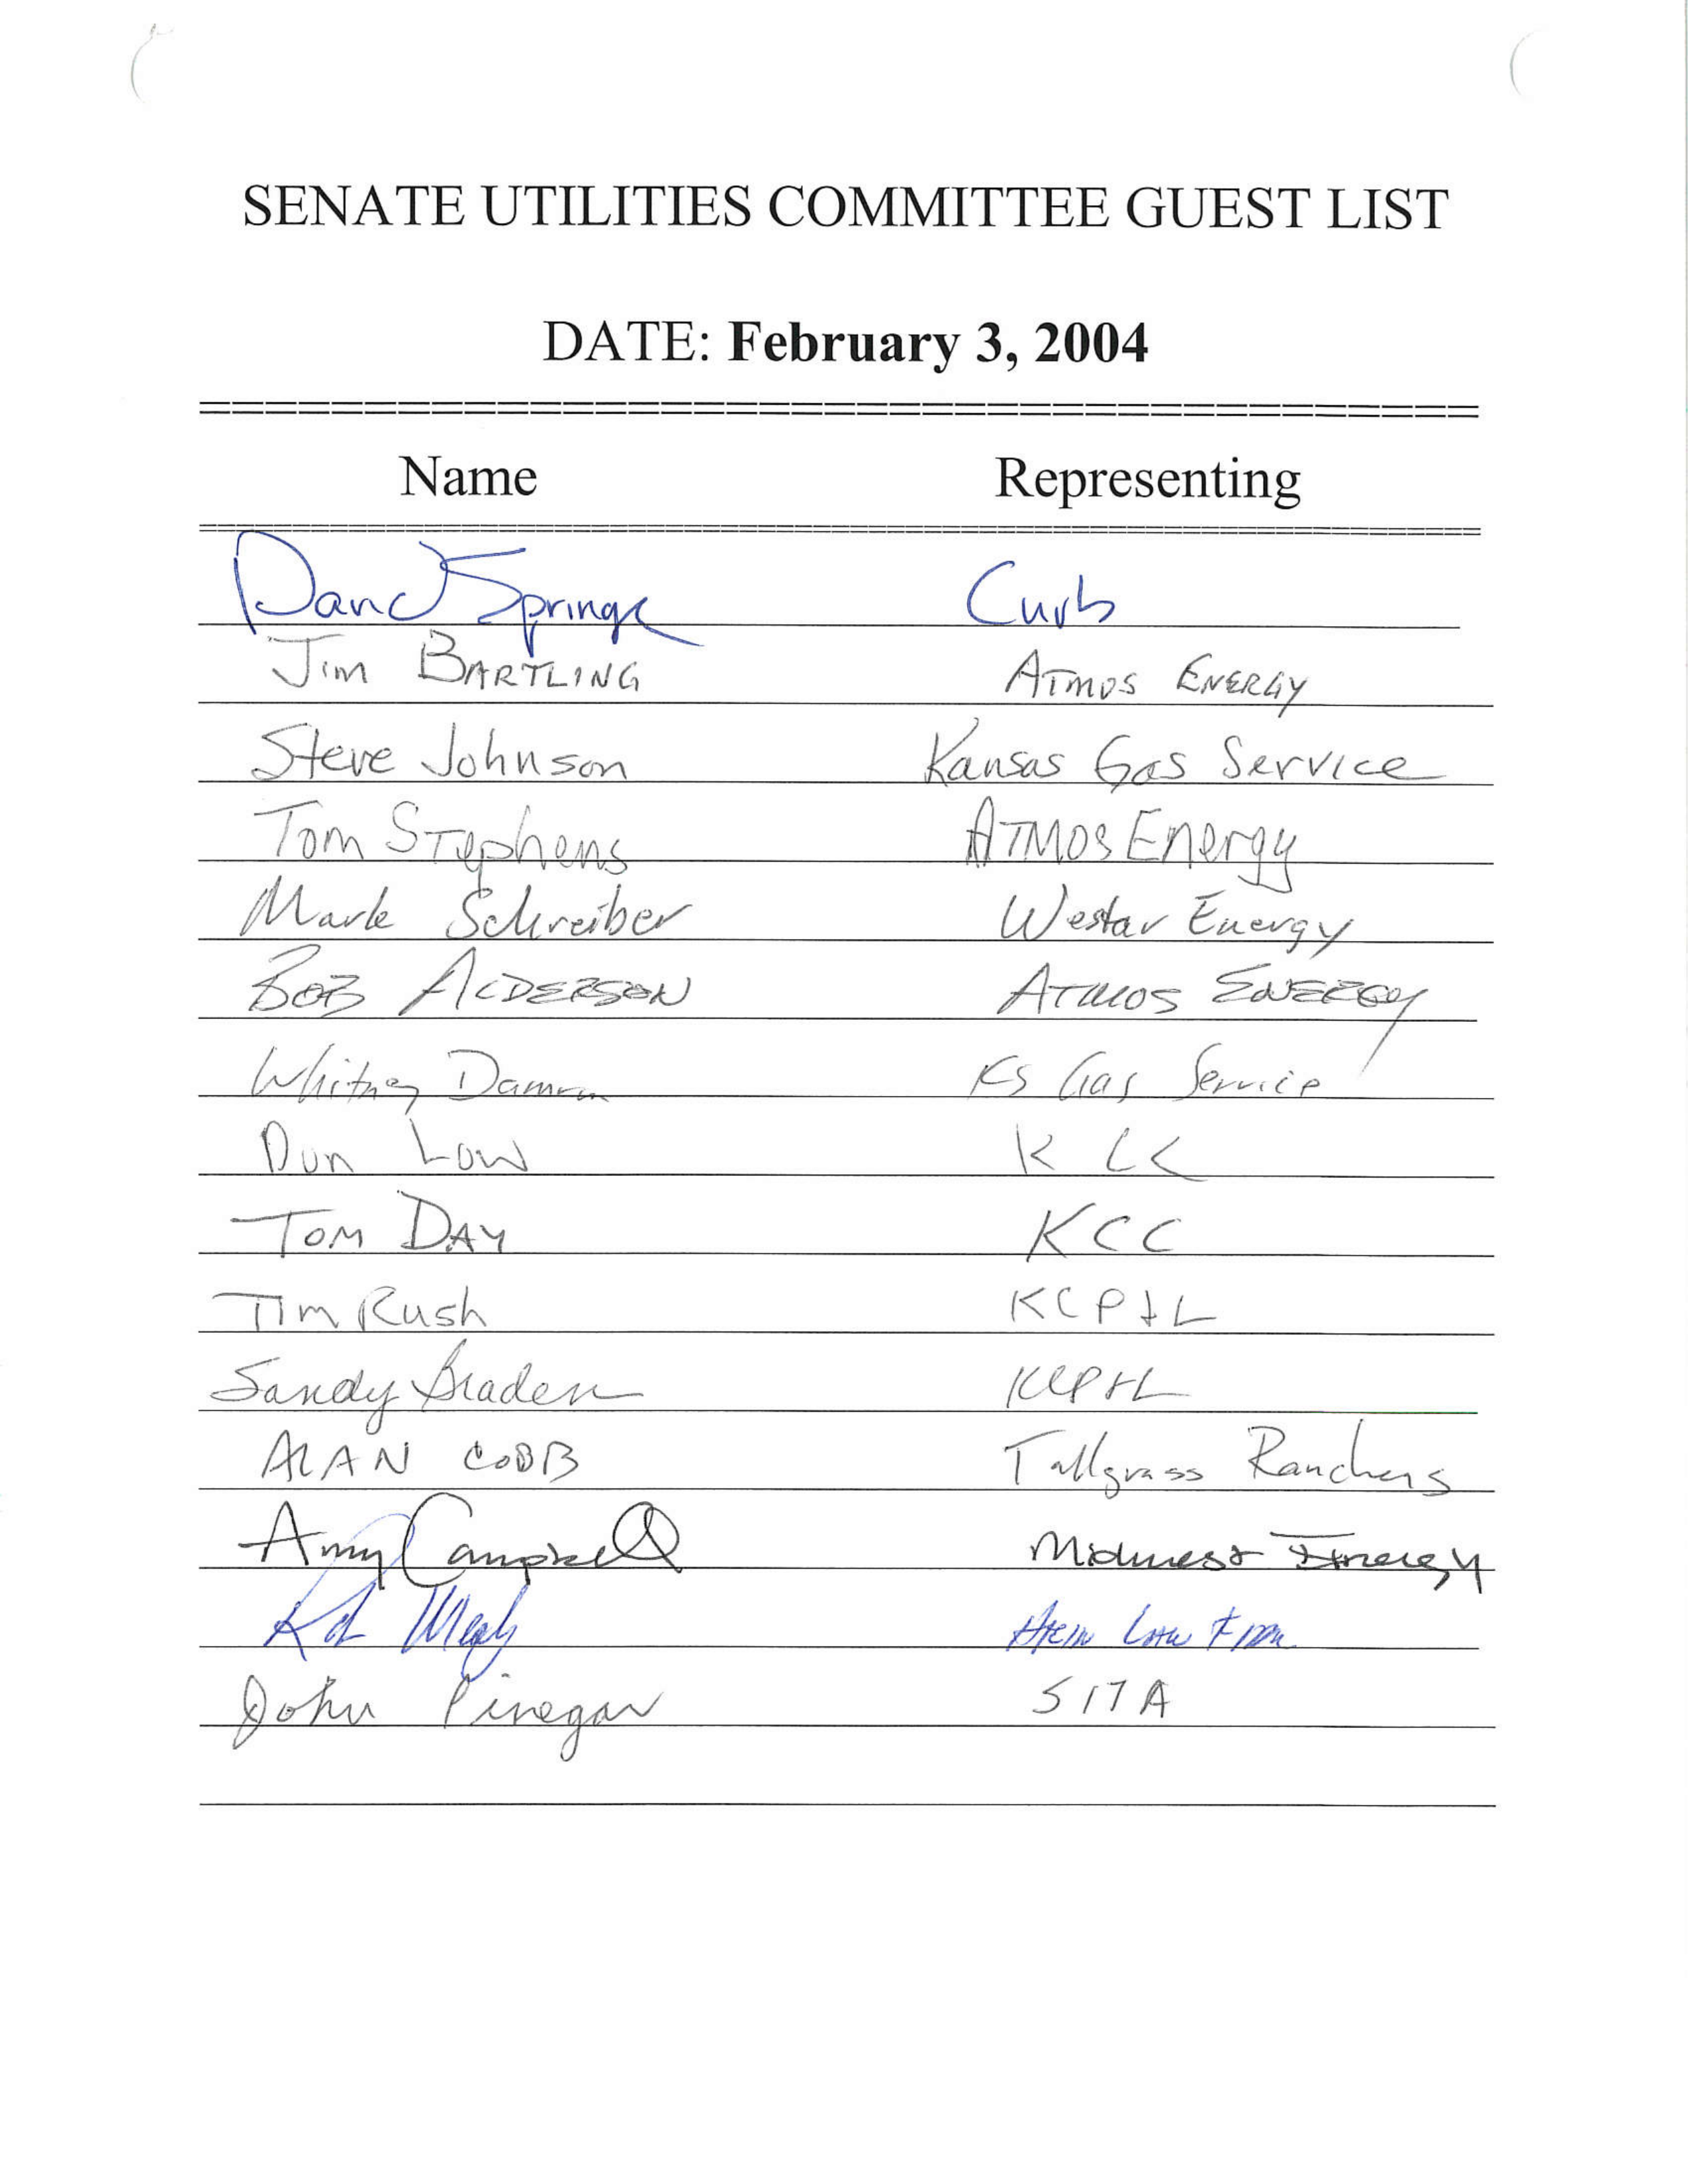 SENATE UTILITIES COMMITTEE GUEST LIST
DATE: February 3, 2004
Name Representing
David Springe Curb
Jim BARTLING ATMOS ENERGY
Steve Johnson Kansas Gas Service
Tom Stephens ATMOS Energy
Mark Schreiber Westar Energy
BOB ALDERSON ATMOS ENERGY
Whitney Damron KS Gas Service
Don Low KCC
TOM DAY KCC
Tim Rush KCP&L
Sandy Braden KCP&L
ALAN COBB Tallgrass Ranchers
Amy Campbell Midwest Energy
Hein Law Firm
John Pinegar SITA